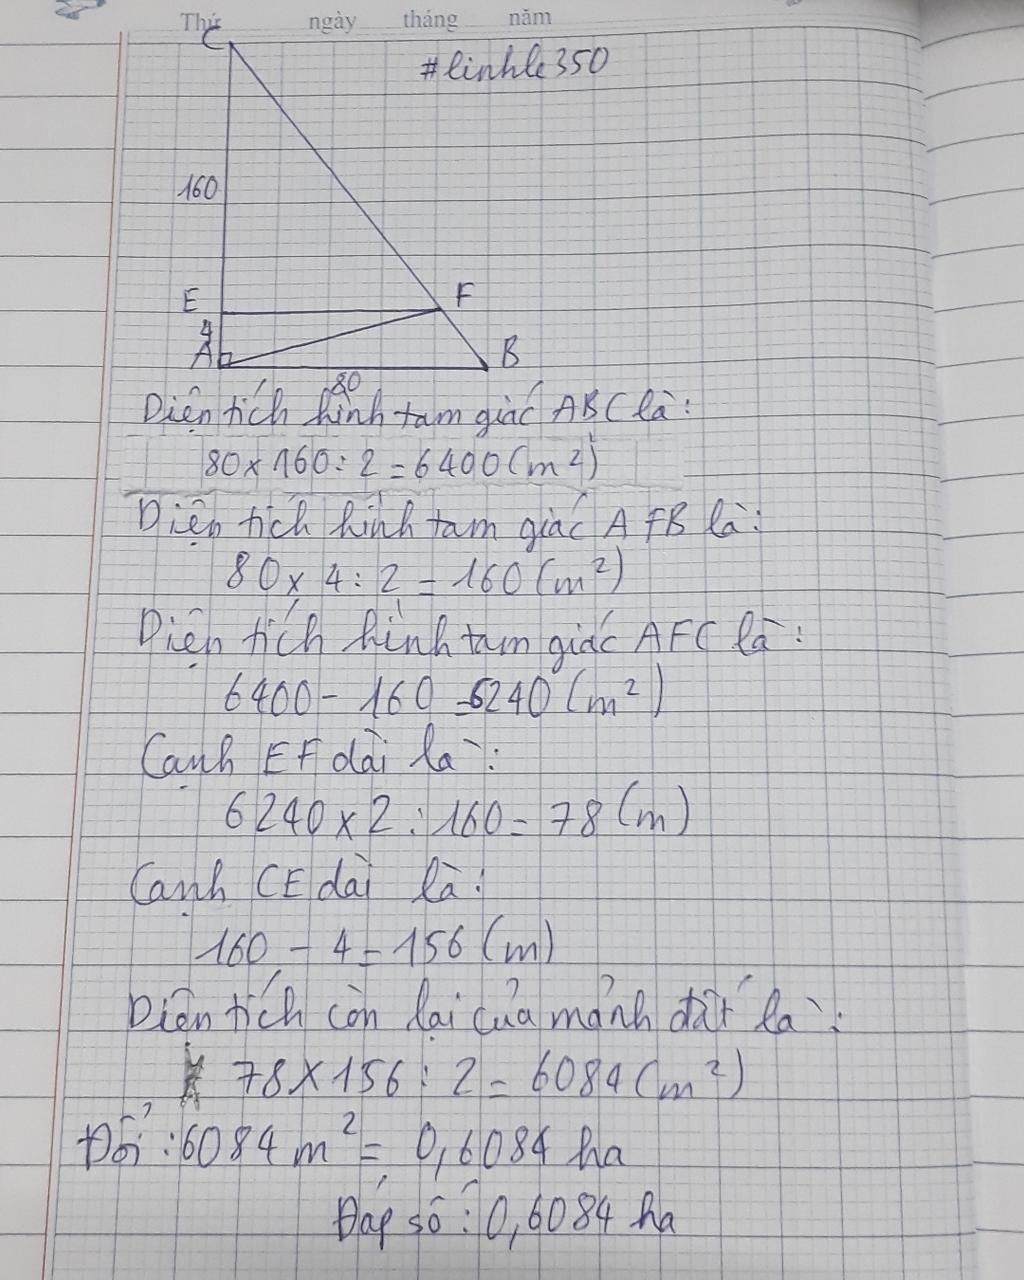 Thứ ngày tháng năm
C
#linhle350
160
E F
4
A B
80
Diện tích hình tam giác ABC là:
80 x 160 : 2 = 6400 (m²)
Diện tích hình tam giác AFB là:
80 x 4 : 2 = 160 (m²)
Diện tích hình tam giác AFC là:
6400 - 160 = 6240 (m²)
Cạnh EF dài là:
6240 x 2 : 160 = 78 (m)
Cạnh CE dài là:
160 - 4 = 156 (m)
Diện tích còn lại của mảnh đất là:
78 x 156 : 2 = 6084 (m²)
Đổi: 6084 m² = 0,6084 ha
Đáp số: 0,6084 ha